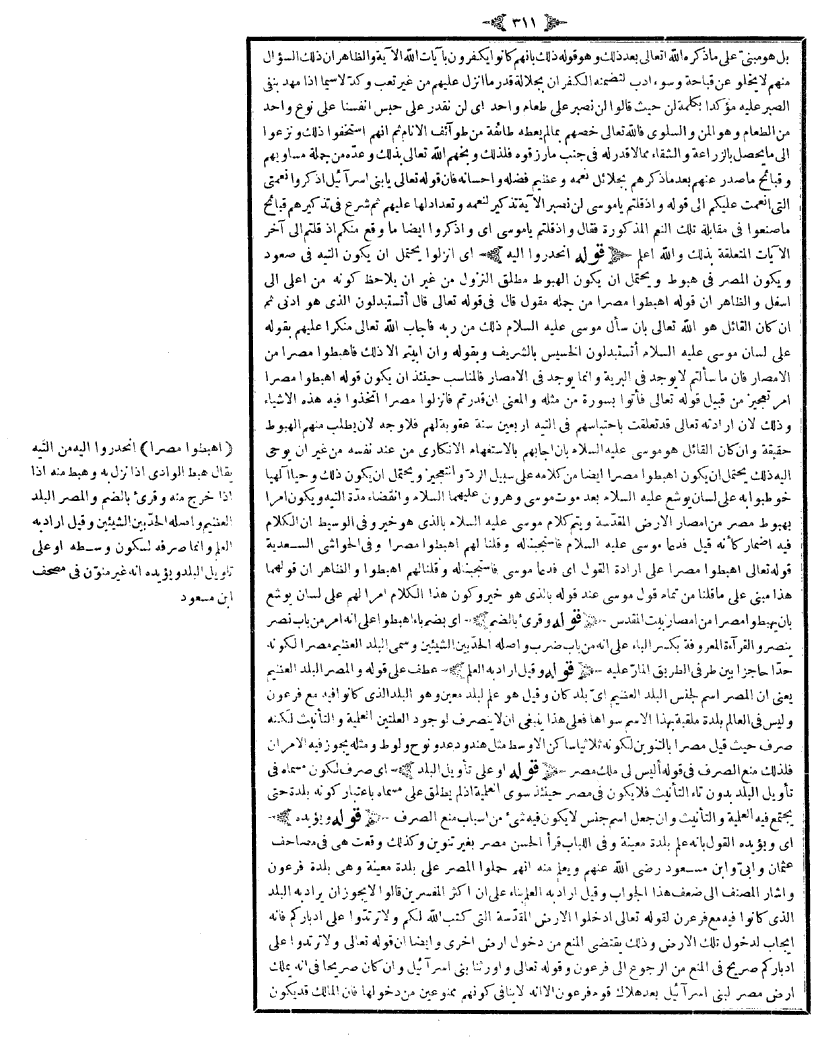 ٣١١
بل هو مبنى على ما ذكره الله تعالى بعد ذلك وهو قوله ذلك بانهم كانوا يكفرون بآيات الله الآية والظاهر ان ذلك السؤال
منهم لا يخلو عن قباحة وسوء ادب لتضمنه الكفران بجلالة قدر ما انزل عليهم من غير تعب وكد لاسيما اذا مهد بنفى
الصبر عليه مؤكدا بكلمة لن حيث قالوا لن نصبر على طعام واحد اى لن نقدر على حبس انفسنا على نوع واحد
من الطعام وهو المن والسلوى فالله تعالى خصهم بما لم يعطه طائفة من طوآئف الانام ثم انهم استخفوا ذلك ونزعوا
الى ما يحصل بالزراعة والشقاء مما لا قدر له فى جنب ما رزقوه فلذلك وبخهم الله تعالى بذلك وعده من جملة مساويهم
وقبائح ما صدر عنهم بعد ما ذكرهم بجلائل نعمه وعظيم فضله واحسانه فان قوله تعالى يابنى اسرآئيل اذكروا نعمتى
التى انعمت عليكم الى قوله واذ قلتم ياموسى لن نصبر الآية تذكير لنعمه وتعدادلها عليهم ثم شرع فى تذكيرهم قبائح
ما صنعوا فى مقابلة تلك النعم المذكورة فقال واذ قلتم ياموسى اى واذكروا ايضا ما وقع منكم اذ قلتم الى آخر
الآيات المتعلقة بذلك والله اعلم ﴿ قوله انحدروا اليه ﴾ اى انزلوا يحتمل ان يكون التيه فى صعود
ويكون المصر فى هبوط ويحتمل ان يكون الهبوط مطلق النزول من غير ان يلاحظ كونه من اعلى الى
اسفل والظاهر ان قوله اهبطوا مصرا من جمله مقول قال فى قوله تعالى قال أتستبدلون الذى هو ادنى ثم
ان كان القائل هو الله تعالى بان سأل موسى عليه السلام ذلك من ربه فاجاب الله تعالى منكرا عليهم بقوله
على لسان موسى عليه السلام أتستبدلون الخسيس بالشريف وبقوله وان ابيتم الا ذلك فاهبطوا مصرا من
الامصار فان ما سألتم لا يوجد فى البرية وانما يوجد فى الامصار فالمناسب حينئذ ان يكون قوله اهبطوا مصرا
امر تعجيز من قبيل قوله تعالى فأتوا بسورة من مثله والمعنى ان قدرتم فانزلوا مصرا اتخذوا فيه هذه الاشياء
وذلك لان ارادته تعالى قد تعلقت باحتباسهم فى التيه اربعين سنة عقوبة لهم فلا وجه لان يطلب منهم الهبوط
حقيقة وان كان القائل هو موسى عليه السلام بان اجابهم بالاستفهام الانكارى من عند نفسه من غير ان يوحى
اليه ذلك يحتمل ان يكون اهبطوا مصرا ايضا من كلامه على سبيل الرد والتعجيز ويحتمل ان يكون ذلك وحيا آلهيا
خوطبوا به على لسان يوشع عليه السلام بعد موت موسى وهرون عليهما السلام وانقضاء مدة التيه ويكون امرا
بهبوط مصر من امصار الارض المقدسة ويتم كلام موسى عليه السلام بالذى هو خير وفى الوسيط ان الكلام
فيه اضمار كأنه قيل فدعا موسى عليه السلام فاستجبنا له وقلنا لهم اهبطوا مصرا وفى الحواشى السعدية
قوله تعالى اهبطوا مصرا على ارادة القول اى فدعا موسى فاستجبنا له وقلنا لهم اهبطوا والظاهر ان قولهما
هذا مبنى على ما قلنا من تمام قول موسى عند قوله بالذى هو خير وكون هذا الكلام امرا لهم على لسان يوشع
بان يهبطوا مصرا من امصار بيت المقدس ﴿ قوله وقرئ بالضم ﴾ اى بضم باء اهبطوا على انه امر من باب نصر
ينصر والقرآءة المعروفة بكسر الباء على انه من باب ضرب واصله الحد بين الشيئين وسمى البلد العظيم مصرا لكونه
حدا حاجزا بين طرفى الطريق المار عليه ﴿ قوله وقيل اراد به العلم ﴾ عطف على قوله والمصر البلد العظيم
يعنى ان المصر اسم لجنس البلد العظيم اى بلد كان وقيل هو علم لبلد معين وهو البلد الذى كانوا فيه مع فرعون
وليس فى العالم بلدة ملقبة بهذا الاسم سواها فعلى هذا ينبغى ان لا ينصرف لوجود العلتين العلمية والتأنيث لكنه
صرف حيث قيل مصرا بالتنوين لكونه ثلاثيا ساكن الاوسط مثل هند ودعد ونوح ولوط ومثله يجوز فيه الامران
فلذلك منع الصرف فى قوله أليس لى ملك مصر ﴿ قوله او على تأويل البلد ﴾ اى صرف لكون مسماه فى
تأويل البلد بدون تاء التأنيث فلا يكون فى مصر حينئذ سوى العلمية اذ لم يطلق على مسماه باعتبار كونه بلدة حتى
يجتمع فيه العلمية والتأنيث وان جعل اسم جنس لا يكون فيه شئ من اسباب منع الصرف ﴿ قوله ويؤيده ﴾
اى ويؤيده القول بانه علم بلدة معينة وفى اللباب قرأ الحسن مصر بغير تنوين وكذلك وقعت هى فى مصاحف
عثمان وابىّ وابن مسعود رضى الله عنهم ويعلم منه انهم حملوا المصر على بلدة معينة وهى بلدة فرعون
واشار المصنف الى ضعف هذا الجواب وقيل اراد به العلم بناء على ان اكثر المفسرين قالوا لا يجوز ان يراد به البلد
الذى كانوا فيه مع فرعون لقوله تعالى ادخلوا الارض المقدسة التى كتب الله لكم ولا ترتدوا على ادباركم فانه
ايجاب لدخول تلك الارض وذلك يقتضى المنع من دخول ارض اخرى وايضا ان قوله تعالى ولا ترتدوا على
ادباركم صريح فى المنع من الرجوع الى فرعون وقوله تعالى واورثنا بنى اسرآئيل وان كان صريحا فى انه يملك
ارض مصر لبنى اسرآئيل بعد هلاك قوم فرعون الا انه لا ينافى كونهم ممنوعين من دخولها فان المالك قد يكون
﴿ اهبطوا مصرا ﴾ انحدروا اليه من التيه
يقال هبط الوادى اذا نزل به وهبط منه اذا
اذا خرج منه وقرئ بالضم والمصر البلد
العظيم واصله الحد بين الشيئين وقيل اراد به
العلم وانما صرفه لسكون وسطه او على
تأويل البلد ويؤيده انه غير منون فى مصحف
ابن مسعود